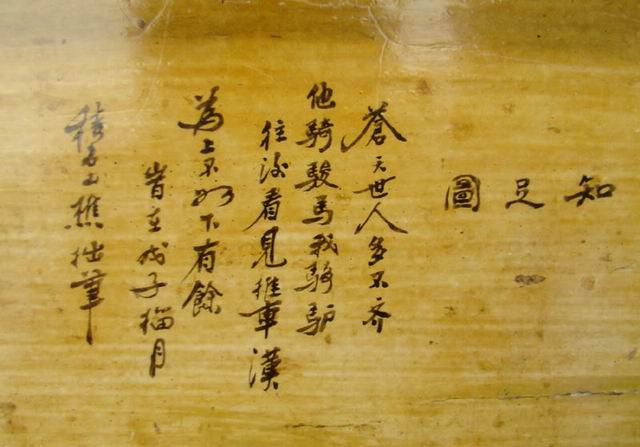 知足圖
蒼天世人多不齐
他騎駿馬我騎驴
往後看見推車漢
為上不如下有餘
時在戊子榴月
樵拙筆